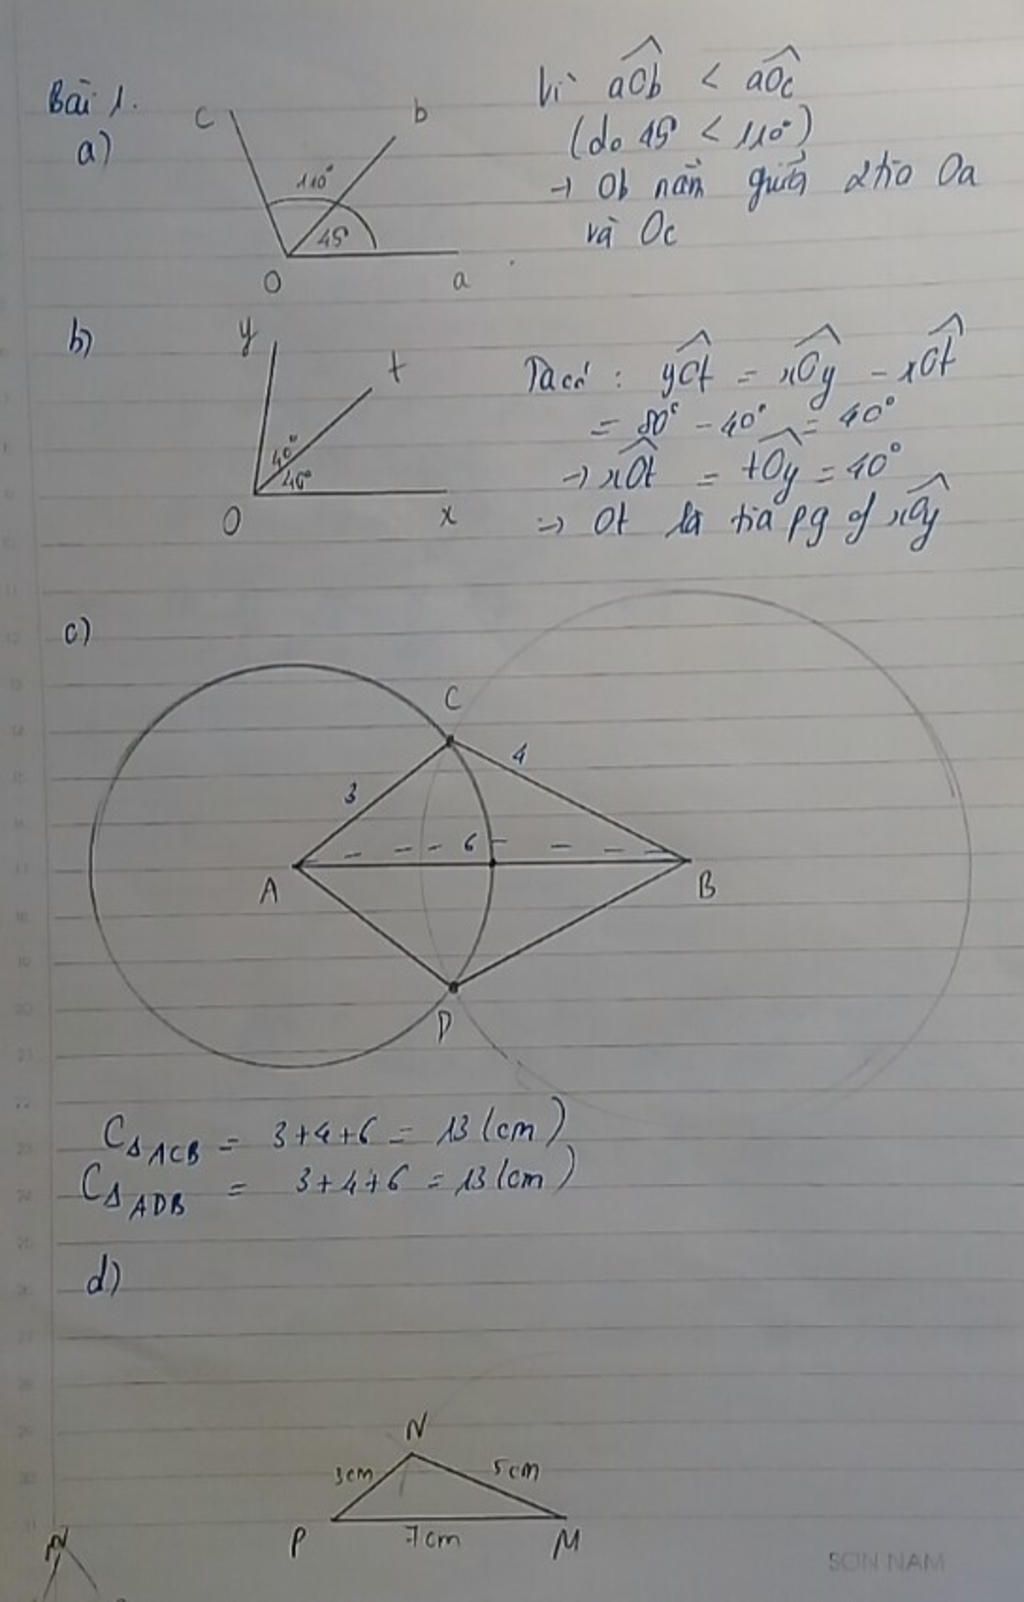 Bài 1.
a)
c
b
110°
45°
O
a
Vì aOb < aOc
(do 45° < 110°)
→ Ob nằm giữa 2 tia Oa
và Oc
b)
y
t
40°
40°
O
x
Ta có : yOt = xOy - xOt
= 80° - 40° = 40°
→ xOt = tOy = 40°
=> Ot là tia pg of xOy
c)
C
3
4
6
A
B
D
CΔACB = 3+4+6 = 13 (cm)
CΔADB = 3+4+6 = 13 (cm)
d)
N
3cm
5cm
P
7cm
M
N
SON NAM